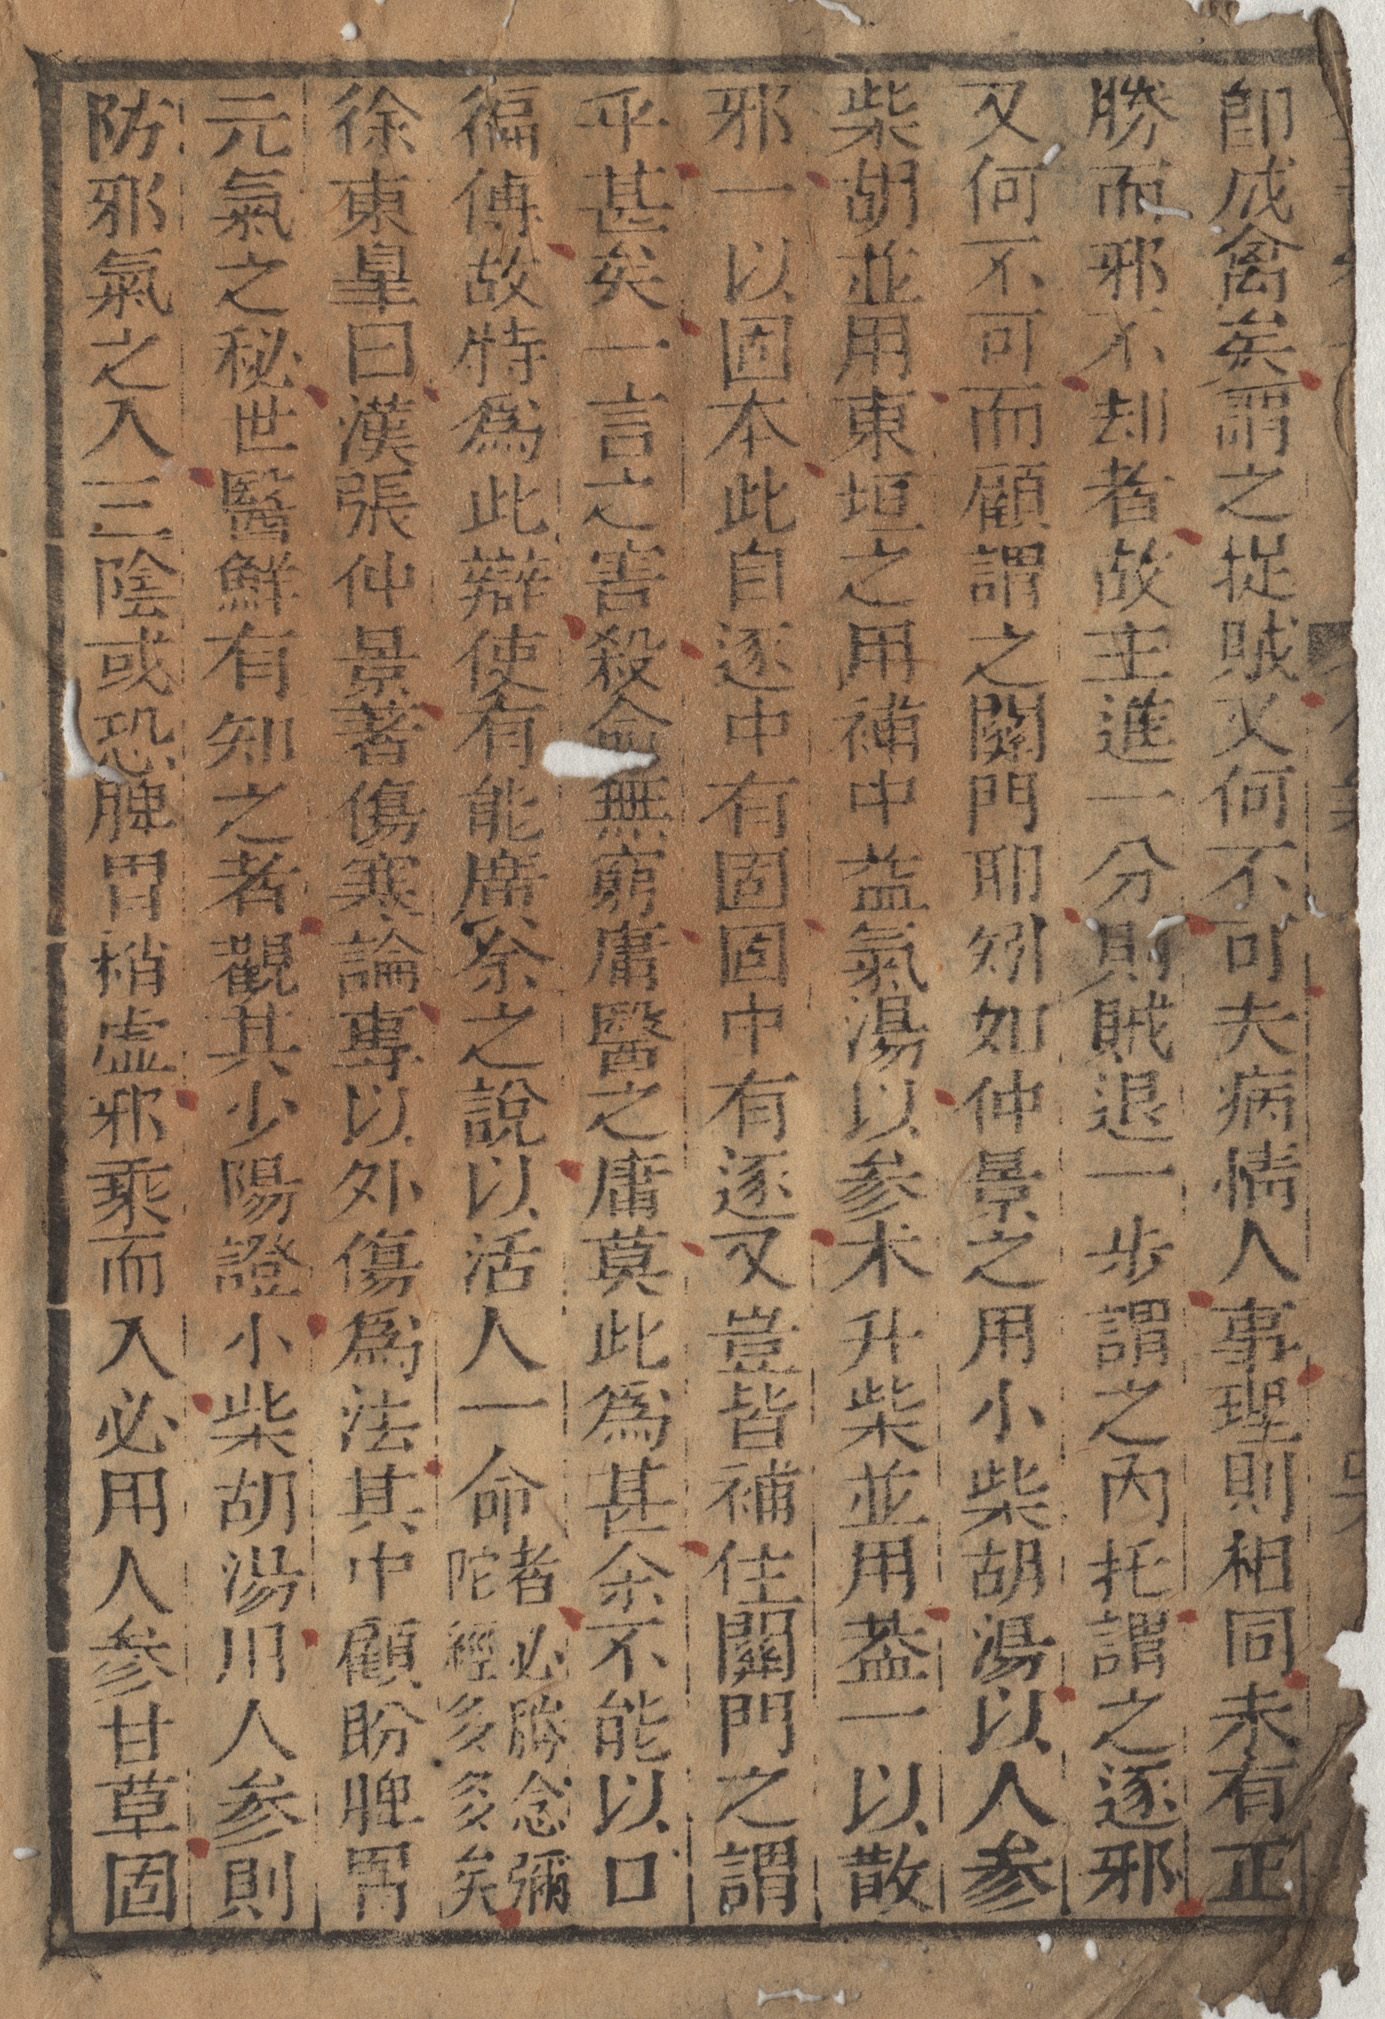 即成禽矣謂之捉賊又何不可夫病情人事理則相同未有正
勝而邪不却者故主進一分則賊退一步謂之內托謂之逐邪
又何不可而顧謂之關門耶矧如仲景之用小柴胡湯以人參
柴胡並用東垣之用補中益氣湯以參朮升柴並用蓋一以散
邪一以固本此自逐中有固固中有逐又豈皆補住關門之謂
乎甚矣一言之害殺命無窮庸醫之庸莫此為甚余不能以口
徧傳故特為此辯使有能廣余之說以活人一命
者必勝念彌
陀經多多矣
徐東皐曰漢張仲景著傷寒論專以外傷為法其中顧盼脾胃
元氣之秘世醫鮮有知之者觀其少陽證小柴胡湯用人參則
防邪氣之入三陰或恐脾胃稍虛邪乘而入必用人參甘草固